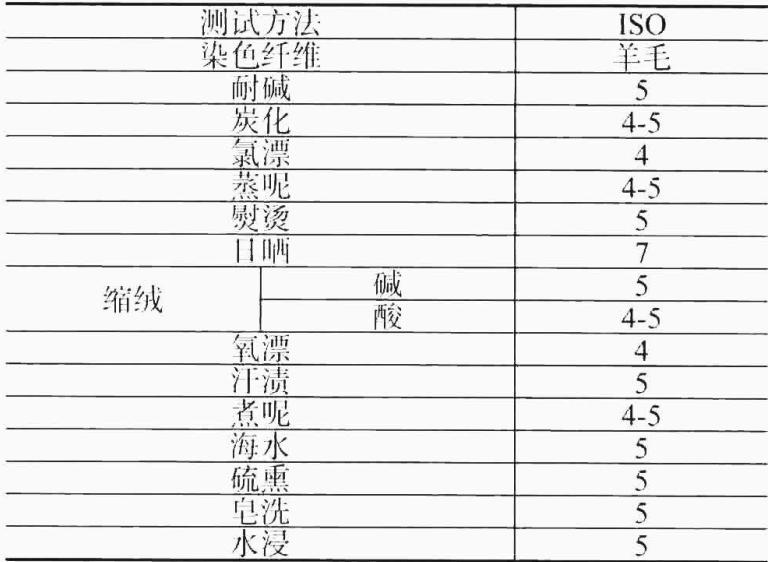 测试方法 ISO
染色纤维 羊毛
耐碱 5
炭化 4-5
氯漂 4
蒸呢 4-5
熨烫 5
日晒 7
缩绒 碱 5
酸 4-5
氧漂 4
汗渍 5
煮呢 4-5
海水 5
硫熏 5
皂洗 5
水浸 5